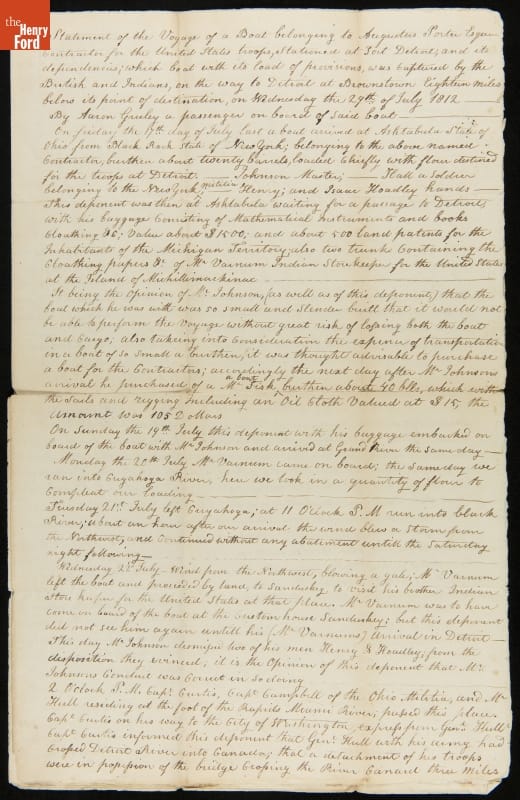 the
Henry
Ford
Statement of the Voyage of a Boat belonging to Augustus Porter Esquire
Contractor for the United States troops, Stationed at Fort Detroit, and its
dependencies; which boat with its load of provisions, was captured by the
British and Indians, on the way to Detroit at Brownstown Eighteen miles
below its point of destination, on Wednesday the 29th of July 1812 —
By Aaron Greeley a passenger on board of said boat —
On friday the 17th day of July last a boat arrived at Ashtabula State of
Ohio from Black Rock State of New York; belonging to the above named
Contractor, burthen about twenty barrels, loaded chiefly with flour destined
for the troops at Detroit — Johnson Master; — Hall a Soldier
belonging to the New York militia Henry; and Isaac Hoadley hands —
This deponent was then at Ashtabula waiting for a passage to Detroit,
with his baggage Consisting of Mathematical Instruments and books
Cloathing &c; Value about $1500, and about 500 land patents for the
Inhabitants of the Michigan Territory; also two trunks Containing the
Cloathing papers &c of Mr Varnum Indian Store keeper for the United States
at the Island of Michillimackinac
It being the opinion of Mr Johnson, (as well as of this deponent,) that the
boat which he was with was so small and Slender built that it would not
be able to perform the Voyage without great risk of lossing both the boat
and Cargo; also takeing into Consideration the expence of transportation
in a boat of so small a burthen, it was thought advisable to purchase
a boat for the Contractor; accordingly the next day after Mr Johnsons
arrival he purchased of a Mr Fisk, a boat burthen about 40 bbs, which with
the Sails and rigging including an Oil Cloth Valued at $15, the
amount was 105 Dollars
On Sunday the 19th July this deponent with his baggage embarked on
board of the boat with Mr Johnson and arrived at Grand River the same day —
Monday the 20th July Mr Varnum came on board; the same day we
ran into Cuyahoga River, here we took in a quantity of flour to
Compleat our loading
Tuesday 21st July left Cuyahoga; at 11 OClock P.M run into black
River; about an hour after our arrival the wind blew a Storm from
the Northwest, and Continued without any abatement untill the Saturday
night following —
Wednesday 22d July — Wind from the Northwest, blowing a gale; Mr Varnum
left the boat and proceeded by land, to Sandusky to visit his brother Indian
Store keeper for the United States at that place. Mr Varnum was to have
come on board of the boat at the Custom house Sandusky; but this deponent
did not see him again untill his (Mr Varnums) arrival in Detroit —
This day Mr Johnson dismissed two of his men Henry & Hoadley; from the
disposition they evinced, it is the Opinion of this deponent that Mr
Johnsons Conduct was Correct in so doing
2 OClock P.M. Capt Curtis, Capt Campbell of the Ohio Militia, and Mr
Hull resideing at the foot of the Rapids Miami River, passed this place.
Capt Curtis on his way to the City of Washington express from Genl Hull
Capt Curtis informed this deponent that Genl Hull with his army had
Crossed Detroit River into Canada; that a detachment of his troops
were in possession of the bridge Crossing the River Canard three Miles